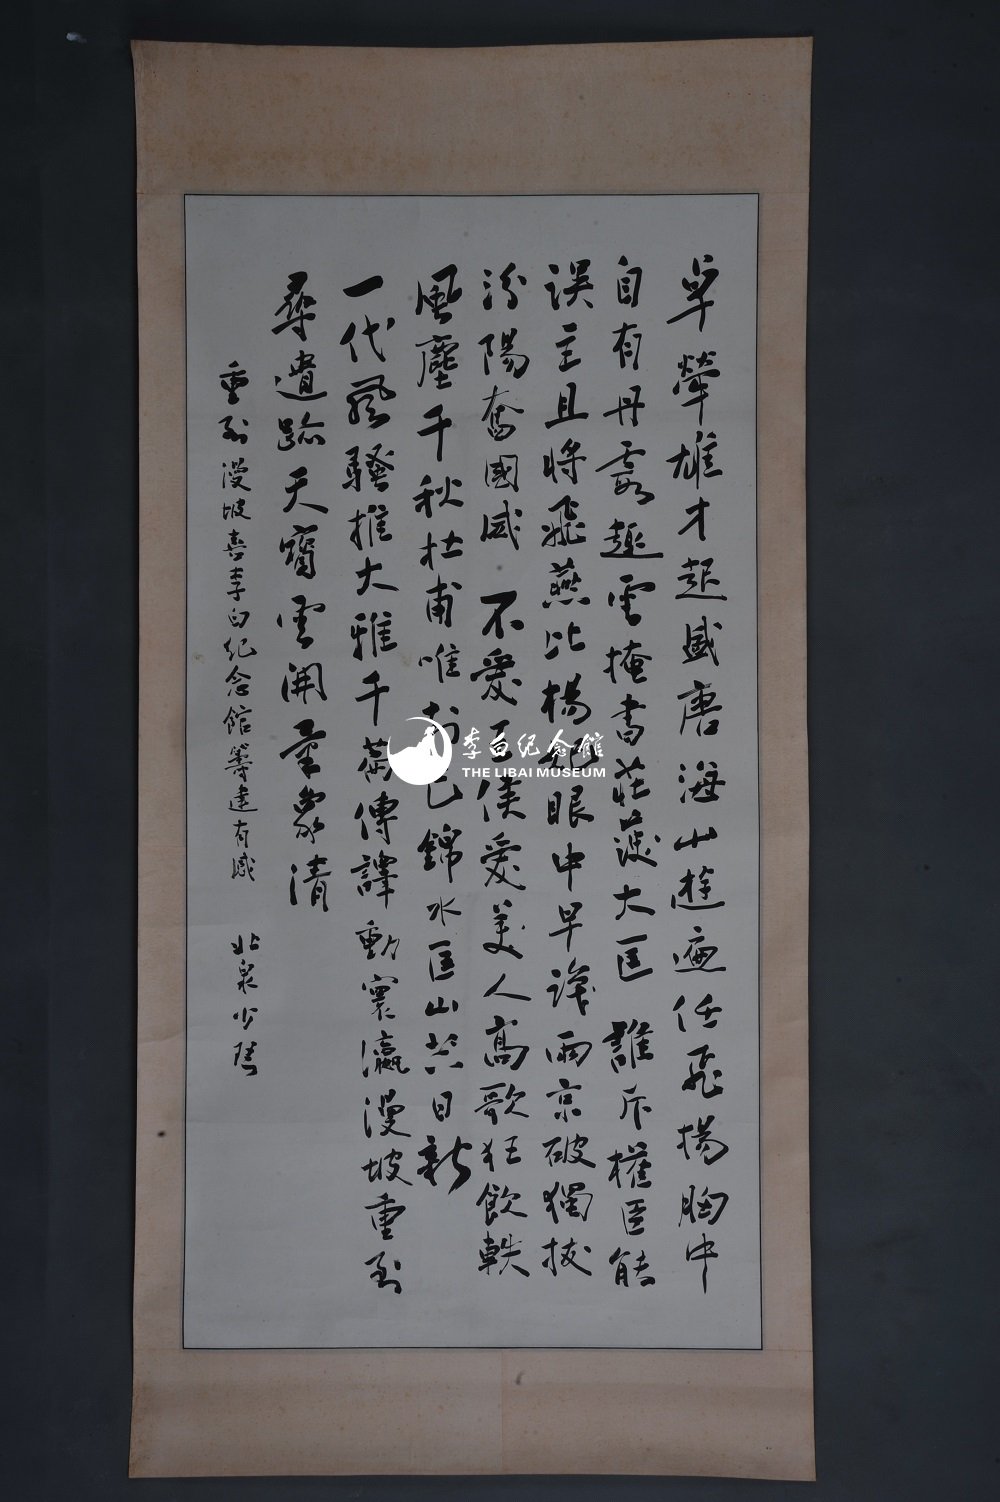 卓犖雄才起盛唐海山遊遍任飛揚胸中
自有丹霞趣雲掩書莊護大匡 誰斥權臣能
误主且將飛燕比楊妃眼中早識兩京破獨拔
汾陽奮國威 不愛王侯愛美人高歌狂飲軼
風塵千秋杜甫唯知己錦水匡山共日新
一代風騷推大雅千篇傳譯動寰瀛漫坡重到
尋遺跡天寶雲開氣象清
重到漫坡喜李白纪念館筹建有感 北泉少
李白纪念馆
THE LIBAI MUSEUM